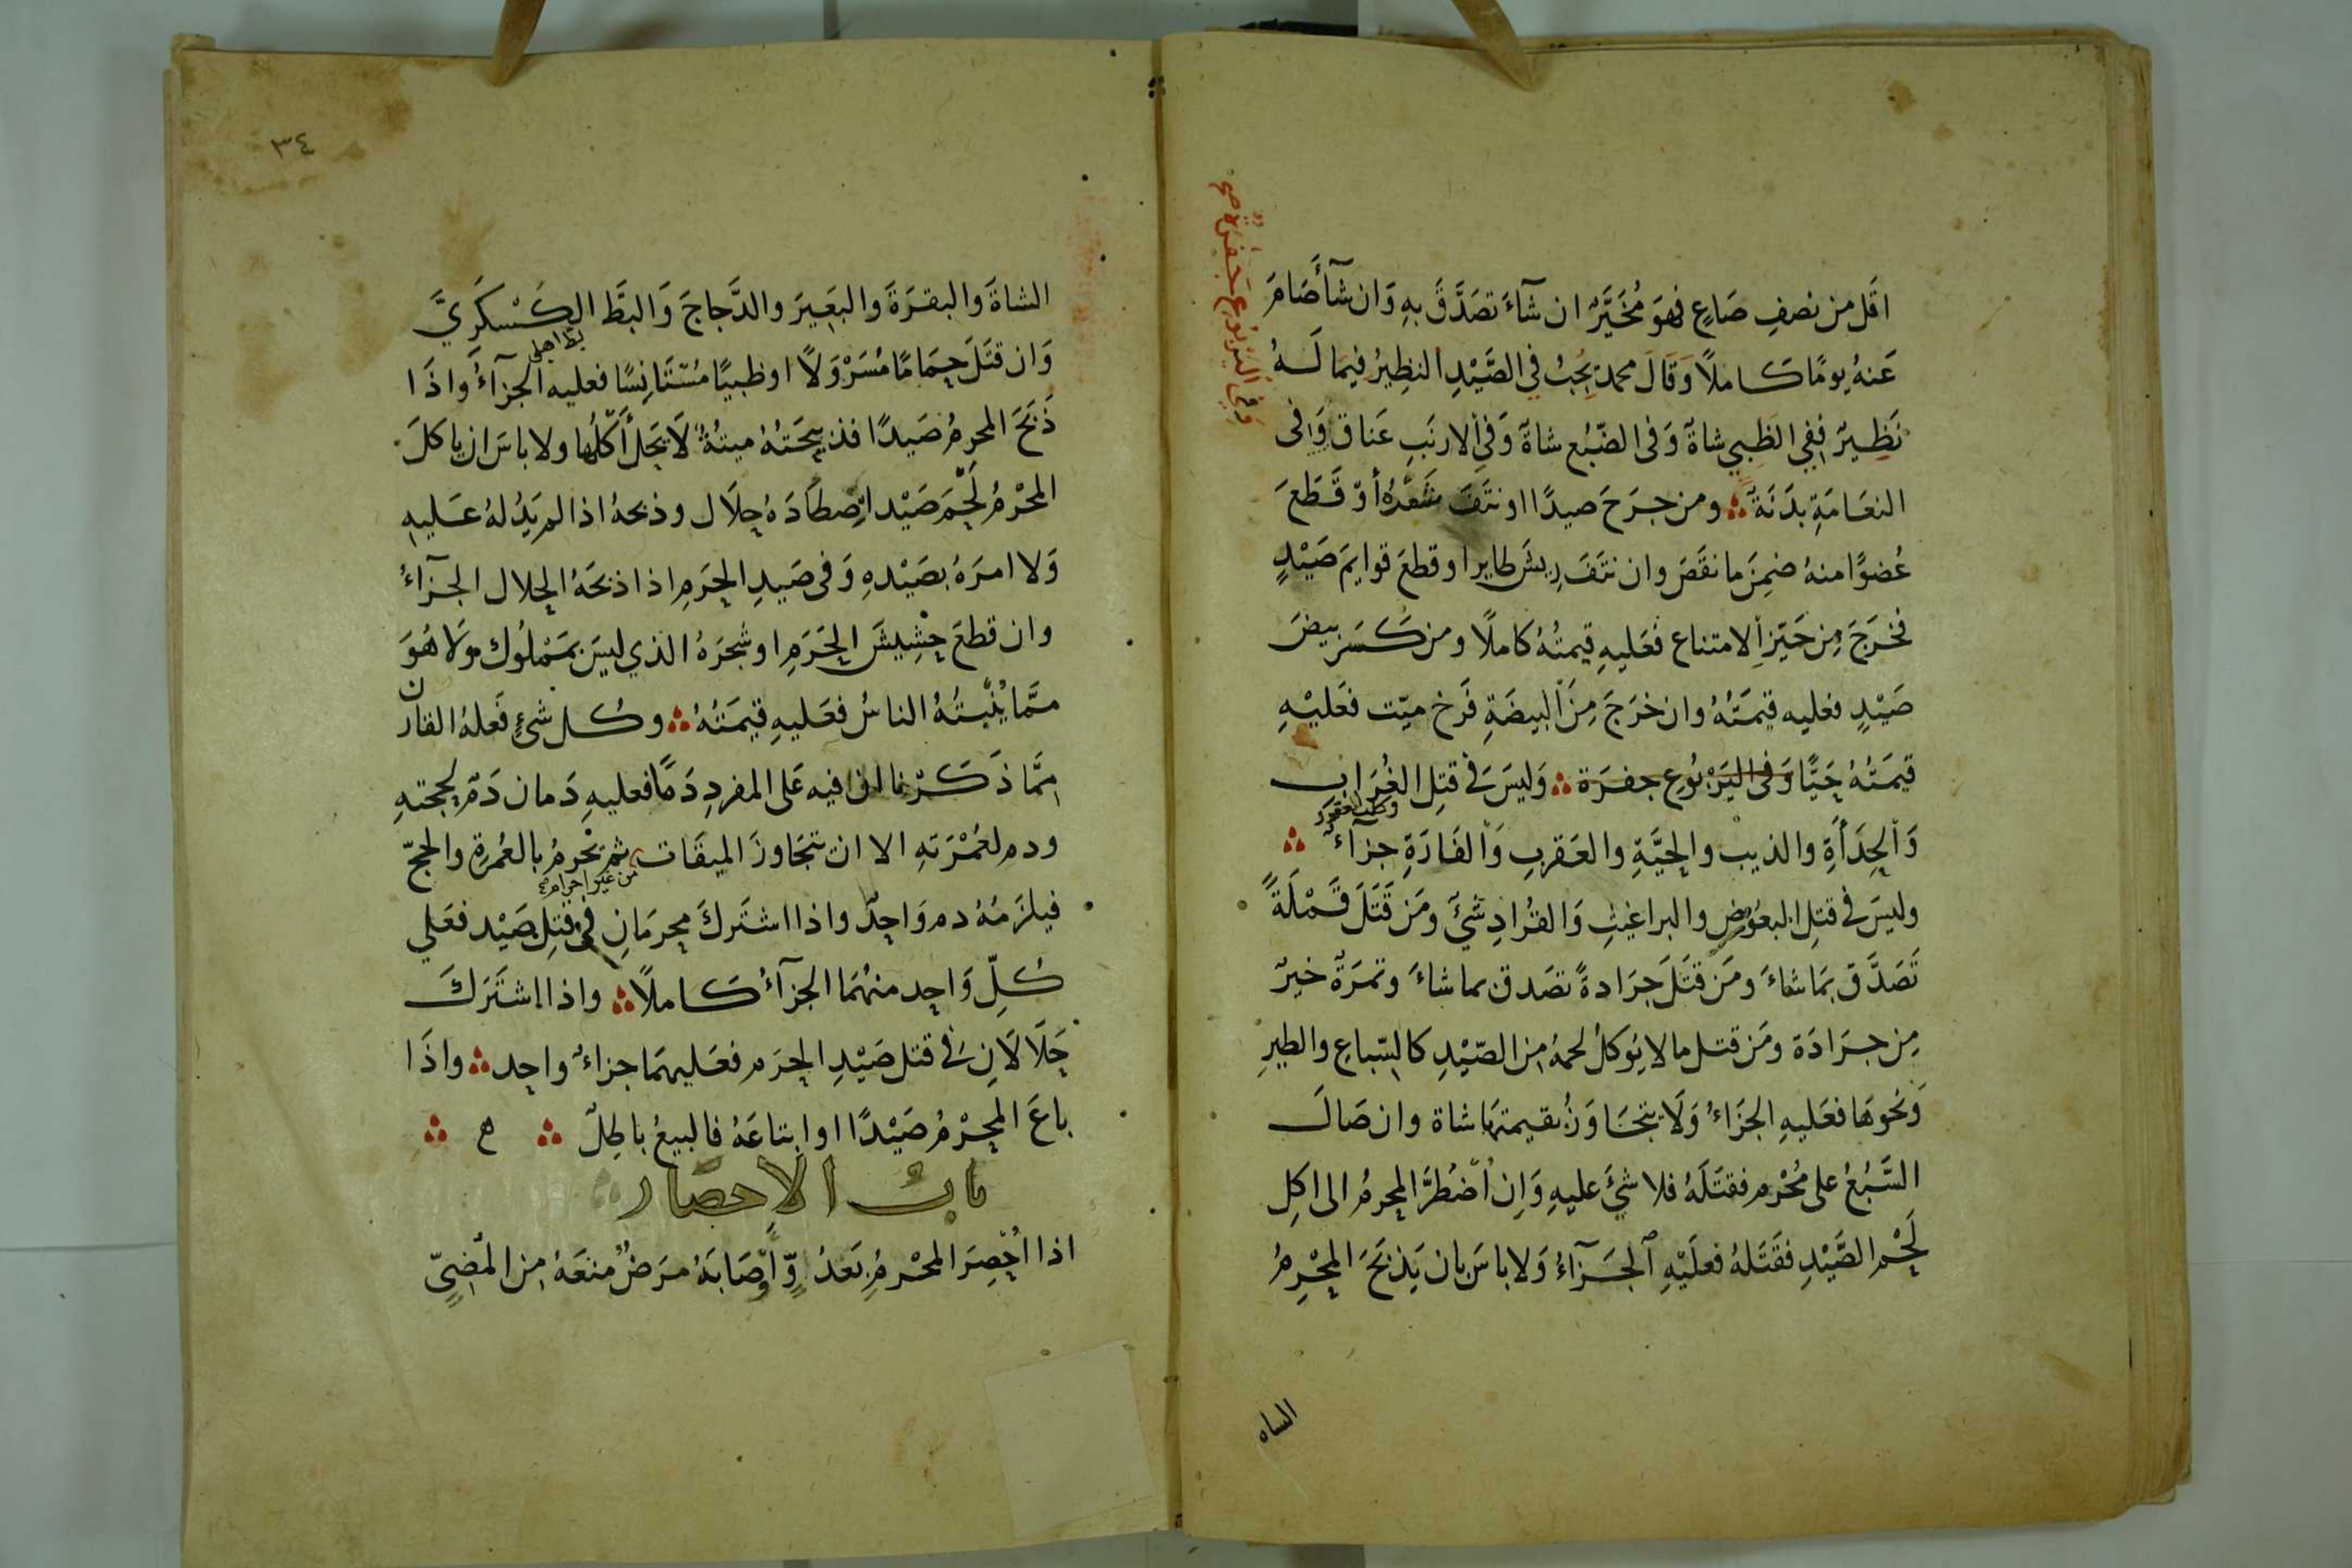 اقَل من نصفِ صَاعٍ فهوَ مُخَيَّرٌ ان شآءَ تصَدَّقَ بهِ وَان شآأَصَامَ
عَنهُ يومًا كاملاً وَقَالَ محمد يجبُ في الصَّيْدِ النظِيرُ فيمَا لَهُ
نَظِيرٌ ففِي الظَبيِ شاةٌ وَفى الضّبُعِ شاةٌ وَفي الارنَبِ عَناق وَفى
النعَامَةِ بدَنَةٌ ومن جرَحَ صيدًا او نتَفَ شعْرَهُ أوْ قَطَعَ
عُضوًا منهُ ضمِنَ ما نقَصَ وان نتَفَ رِيشَ طايرٍ او قطعَ قوايمَ صَيْدٍ
فخرَجَ مِن حَيّزِ الامتناع فَعَليهِ قيمتُهُ كاملًا ومن كَسَرَ بيضَ
صَيْدٍ فعليه قيمَتُهُ وان خرَجَ مِنَ البيضَةِ فَرخ ميّت فعَليْهِ
قيمَتُهُ حَيًّا وَفى اليَرْبُوعِ جفرَة وَليسَ فى قتِل الغُرَابِ
وَالحِدَأَةِ والذيب والحيَّةِ والعَقربِ وَالفَارَةِ جزآءٌ
وليسَ فى قتِل البعُوضِ والبراغيثِ وَالقُرادِ شَيٌ ومَن قَتَلَ قَمْلَةً
تَصَدَّقَ بمَا شاءَ ومَن قتَلَ جرَادةً تصَدق بما شاءَ وتمرَةٌ خيرٌ
مِن جرَادَة ومَن قتل ما لا يُوكلُ لحمهُ مِن الصَّيْدِ كالسّباعِ والطيرِ
وَنحوهَا فعَليهِ الجزَاءُ وَلَا يتجَاوَزُ بقيمتهَا شاة وان صَالَ
السَّبُعُ على مُحْرمٍ فقتَلَهُ فلا شئَ عليهِ وَاِن اُضْطُرَّ المحرمُ الى اكِل
لَحْمِ الصَّيْدِ فقَتَلهُ فعلَيْهِ الجَزَآءُ وَلا باسَ بان يَذبَحَ المحْرِمُ
وفي اليربُوعِ جَفرَةٌ صح
الساه
٣٤
الشاةَ والبقرَةَ والبَعِيرَ والدَّجاجَ وَالبَطَّ الكَسْكَرِيَّ
بط اهلي
وَان قتَلَ حمَامًا مُسَرْوَلاً او ظبيًا مُسْتَانِسًا فعليه الجزآءُ واذَا
ذَبَحَ المحرمُ صَيدًا فذبيحَتُهُ ميتةٌ لَا يَحلُ أكلُها ولا باسَ ان ياكلَ
المحْرمُ لَحْمَ صَيْد اِصْطادَهُ حِلَال وذبحهُ اذا لم يَدُلهُ عَليهِ
وَلا امرَهُ بصَيْدهِ وَفى صَيدِ الحَرَمِ اذا ذبحَهُ الحلال الجزآءُ
وان قطعَ حشِيشَ الحَرَمِ او شجَرَهُ الذي ليسَ بمَمْلُوك وَلَا هُوَ
ممَّا يُنْبتُهُ الناسُ فعَليهِ قيمَتُهُ وكُل شئٍ فَعلهُ القارن
ممَّا ذَكَرْنا ان فيه عَلى المفردِ دَمًا فعليهِ دَمان دَمٌ لحجتهِ
ودم لعُمْرَتهِ الا ان تتجَاوزَ الميقَات ثم يحْرمُ بالعُمرةِ والحجّ
من غير احرام صح
فيلزَمُهُ دم وَاحِدٌ واذا اشتَركَ محرمَانِ فى قتلِ صَيْد فعَلي
كُلّ وَاحِد منهُمَا الجزآءُ كاملًا واذا اشتَرَكَ
حَلَالَانِ فى قتل صَيْدِ الحرَمِ فعَليهمَا جزاءٌ واحِد واذَا
باعَ المحِرْمُ صَيْدًا او ابتاعَهُ فالبيعُ باطِلٌ ه
بابُ الاحصَار
اذا اُحْصِرَ المحْرمُ بَعدُوٍّ أوْ أصَابَهُ مرَضٌ منعَهُ مِن المُضىِّ